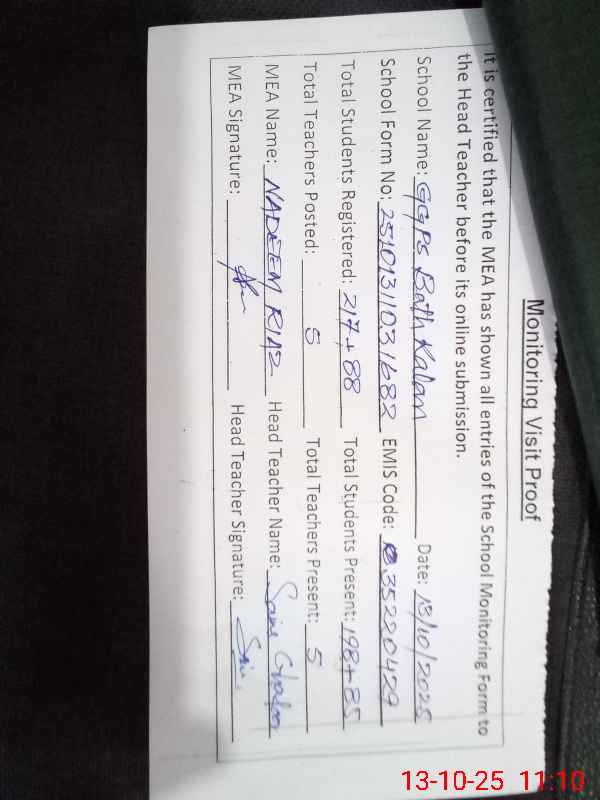 Monitoring Visit Proof
It is certified that the MEA has shown all entries of the School Monitoring Form to
the Head Teacher before its online submission.
School Name: GGPS Bath Kalan Date: 13/10/2025
School Form No: 2510131031682 EMIS Code: 35220429
Total Students Registered: 217+88 Total Students Present: 198+85
Total Teachers Posted: 5 Total Teachers Present: 5
MEA Name: NADEEM RIAZ Head Teacher Name:
MEA Signature: Head Teacher Signature:
13-10-25 11:10